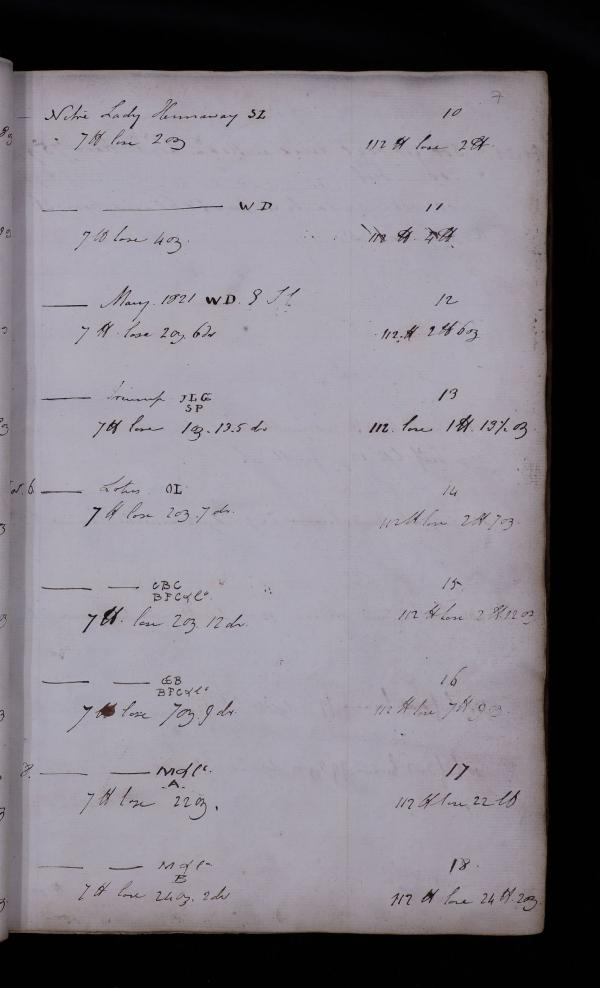 7
Nitre Lady Hennaway SL 10
7 lb lose 2 oz 112 lb lose 2 lb
W D 11
7 lb lose 4 oz. 112 lb. 4 lb
Mary. 1821 WD.
12
7 lb. lose 2 oz. 6 dr 112. lb 2 lb 6 oz
Triumph JLG 13
SP
7 lb lose 1 oz. 13.5 dr 112. lose 1 lb. 13½ oz
Lotus OL 14
7 lb lose 2 oz. 7 dr. 112 lb lose 2 lb 7 oz
CBC 15
BFC & Co
7 lb. lose 2 oz. 12 dr. 112 lb lose 2 lb 12 oz
CEB 16
BFC & Co
7 lb lose 7 oz. 9 dr. 112 lb lose 7 lb. 9 oz.
M & Co. 17
A.
7 lb lose 22 oz. 112 lb lose 22 lb
M & Co 18.
B
7 lb lose 24 oz. 2 dr 112 lb lose 24 lb. 2 oz.